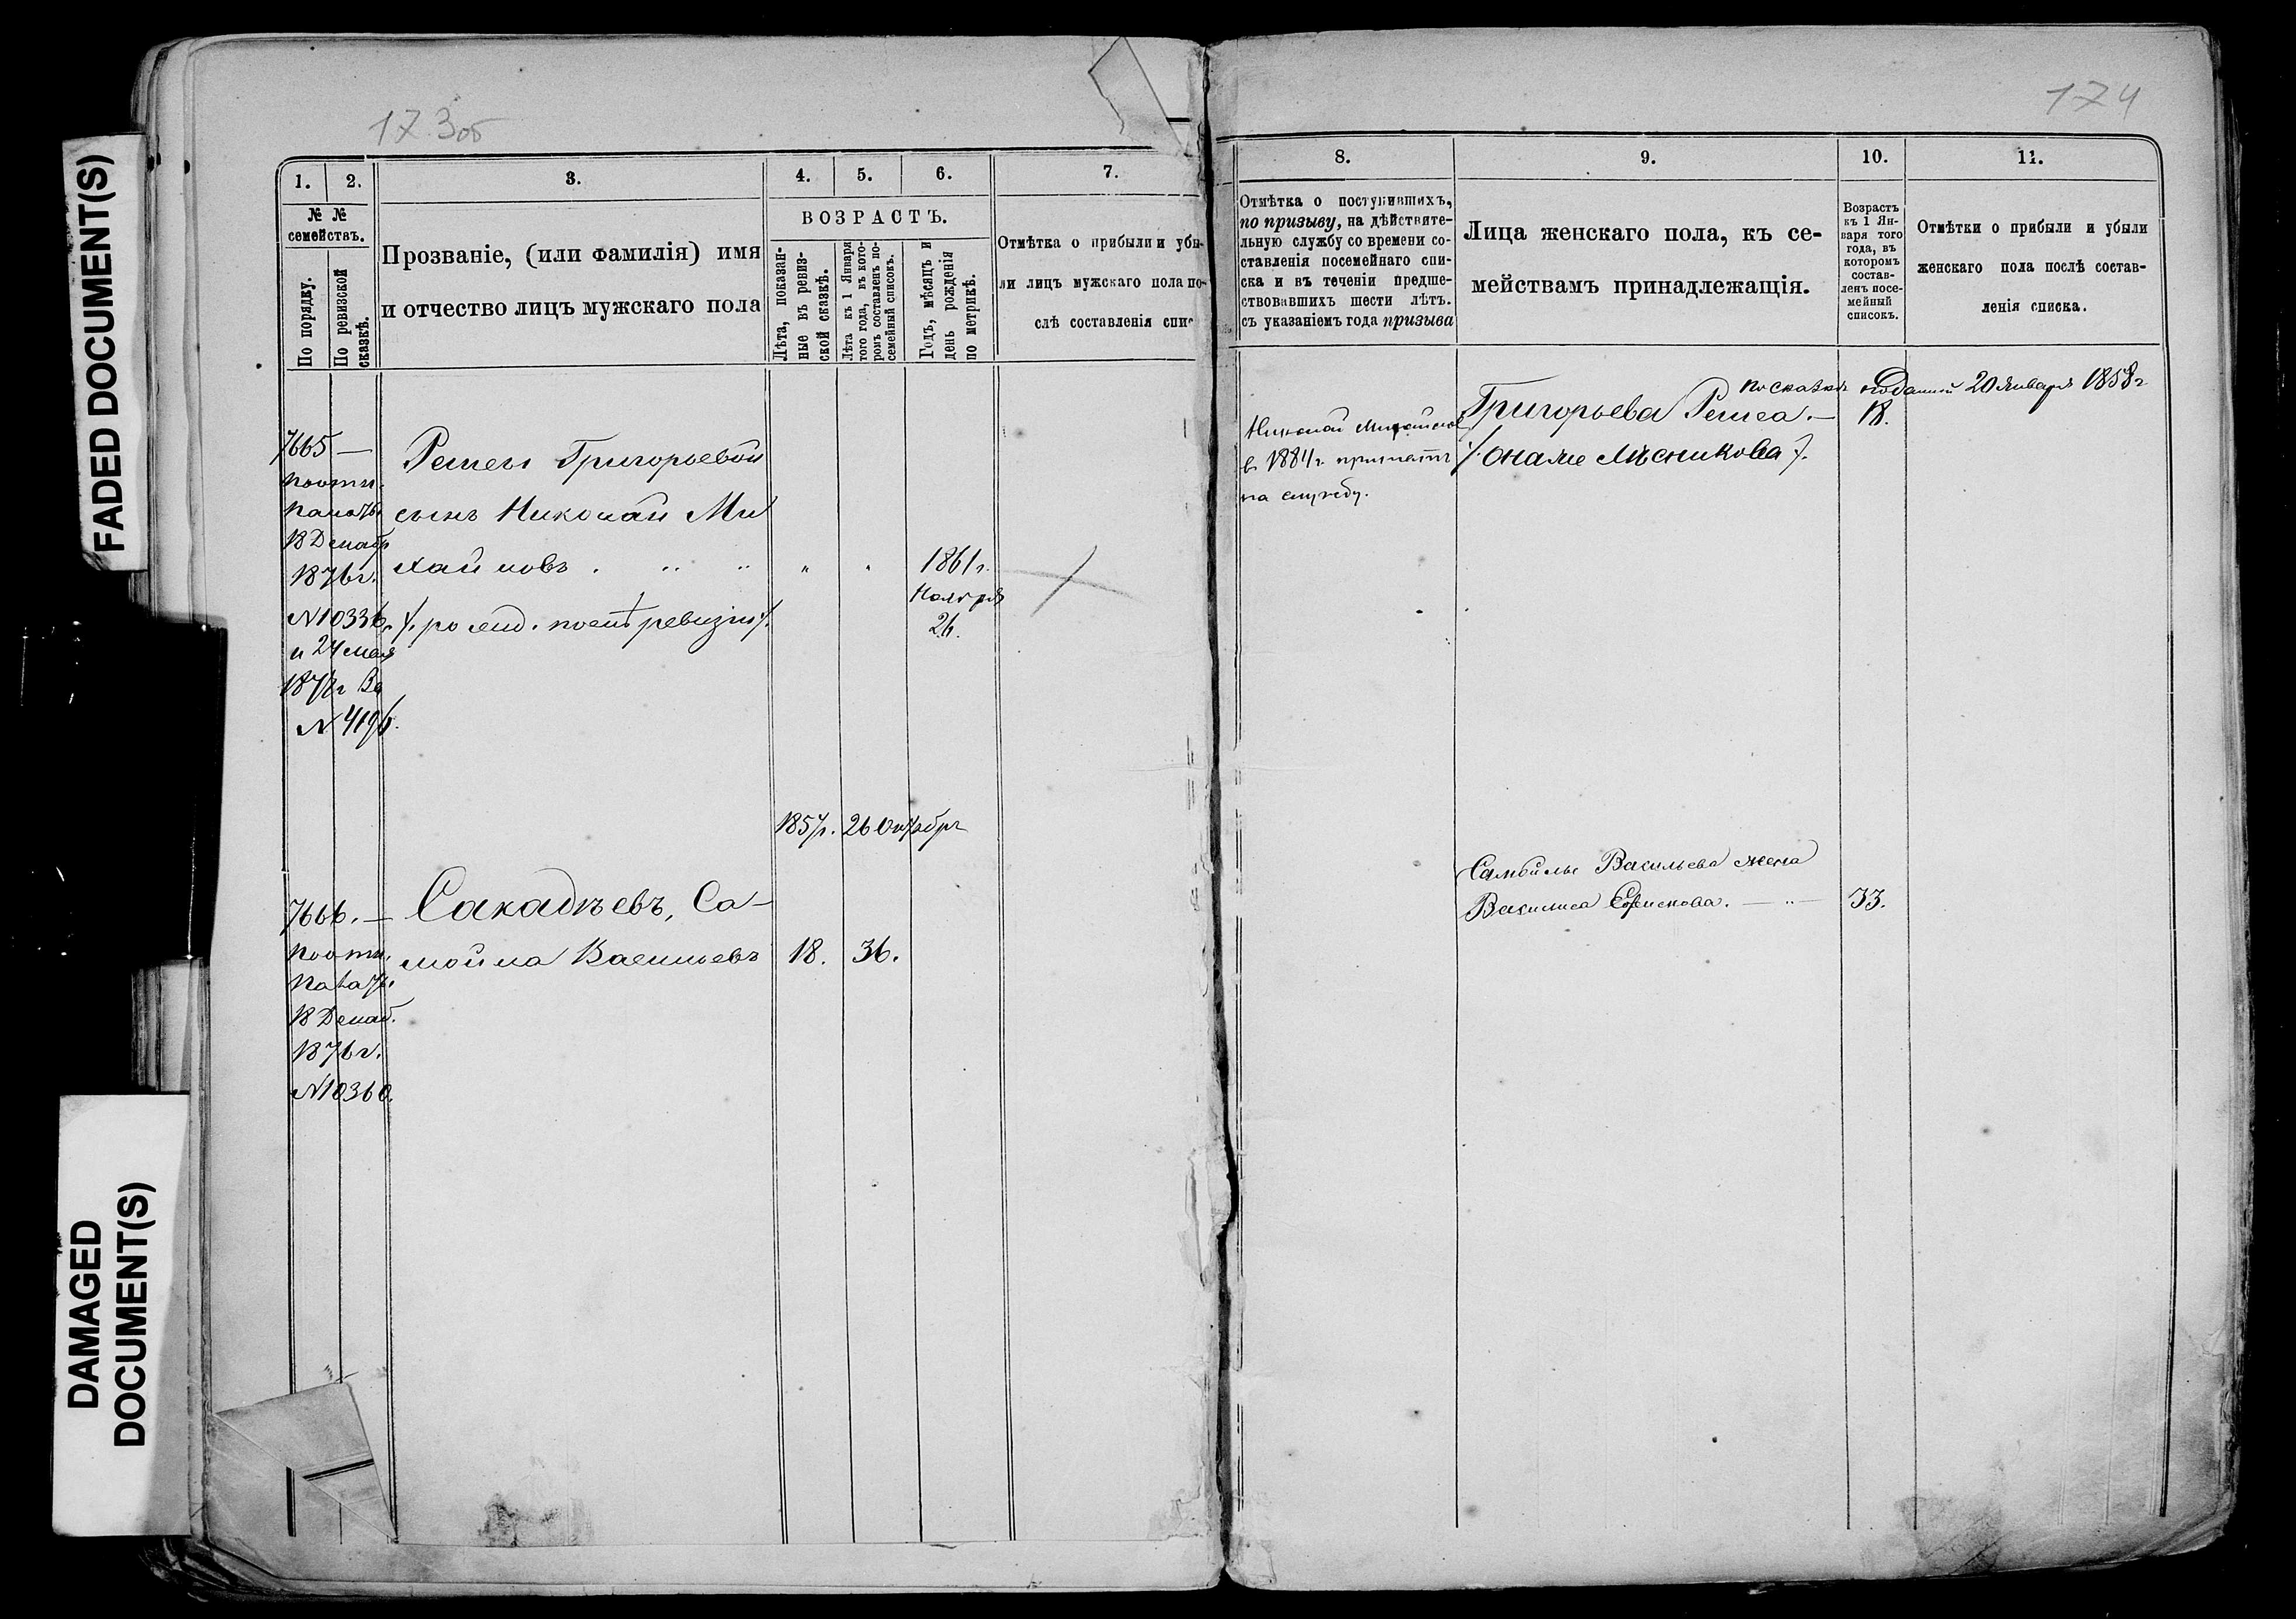 FADED DOCUMENT(S)
DAMAGED
DOCUMENT(S)
173об
1.
2.
3.
4.
5.
6.
7.
№ №
семействъ.
По порядку.
По ревизской
сказкѣ.
Прозваніе, (или фамилія) имя
и отчество лицъ мужскаго пола
ВОЗРАСТЪ.
Лѣта, показан-
ные въ ревиз-
ской сказкѣ.
Лѣта къ 1 Января
того года, въ кото-
ромъ составленъ по-
семейный списокъ.
Годъ, мѣсяцъ и
день рожденія
по метрикѣ.
Отмѣтка о прибыли и убы-
ли лицъ мужскаго пола по-
слѣ составленія спис
7665 —
18 Декабр
1876 г.
N 10336.
и 24 мая
1878 г За
N 4196.
Григорьевой
сынъ Николай Ми
хайловъ . .. ..
" "
1861 г.
Ноября
26.
1857г. 26 Октября
7666. —
18 Декаб.
1876 г.
N 10360.
Сакадѣевъ, Са-
мойла Васильевъ
18. 36.
174
8.
9.
10.
11.
Отмѣтка о поступившихъ,
по призыву, на дѣйствите-
льную службу со времени со-
ставленія посемейнаго спи-
ска и въ теченіи предше-
ствовавшихъ шести лѣтъ.
съ указаніемъ года призыва
Лица женскаго пола, къ се-
мействамъ принадлежащія.
Возрастъ
къ 1 Ян-
варя того
года, въ
которомъ
состав-
ленъ посе-
мейный
списокъ.
Отмѣтки о прибыли и убыли
женскаго пола послѣ состав-
ленія списка.
по сказкѣ поданной 20 Января 1858 г
Григорьева —
18.
/: она же Мясникова :/.
Николай
в 1884 г. принятъ
на службу.
Самойлы Васильева жена
Василиса — " —
33.